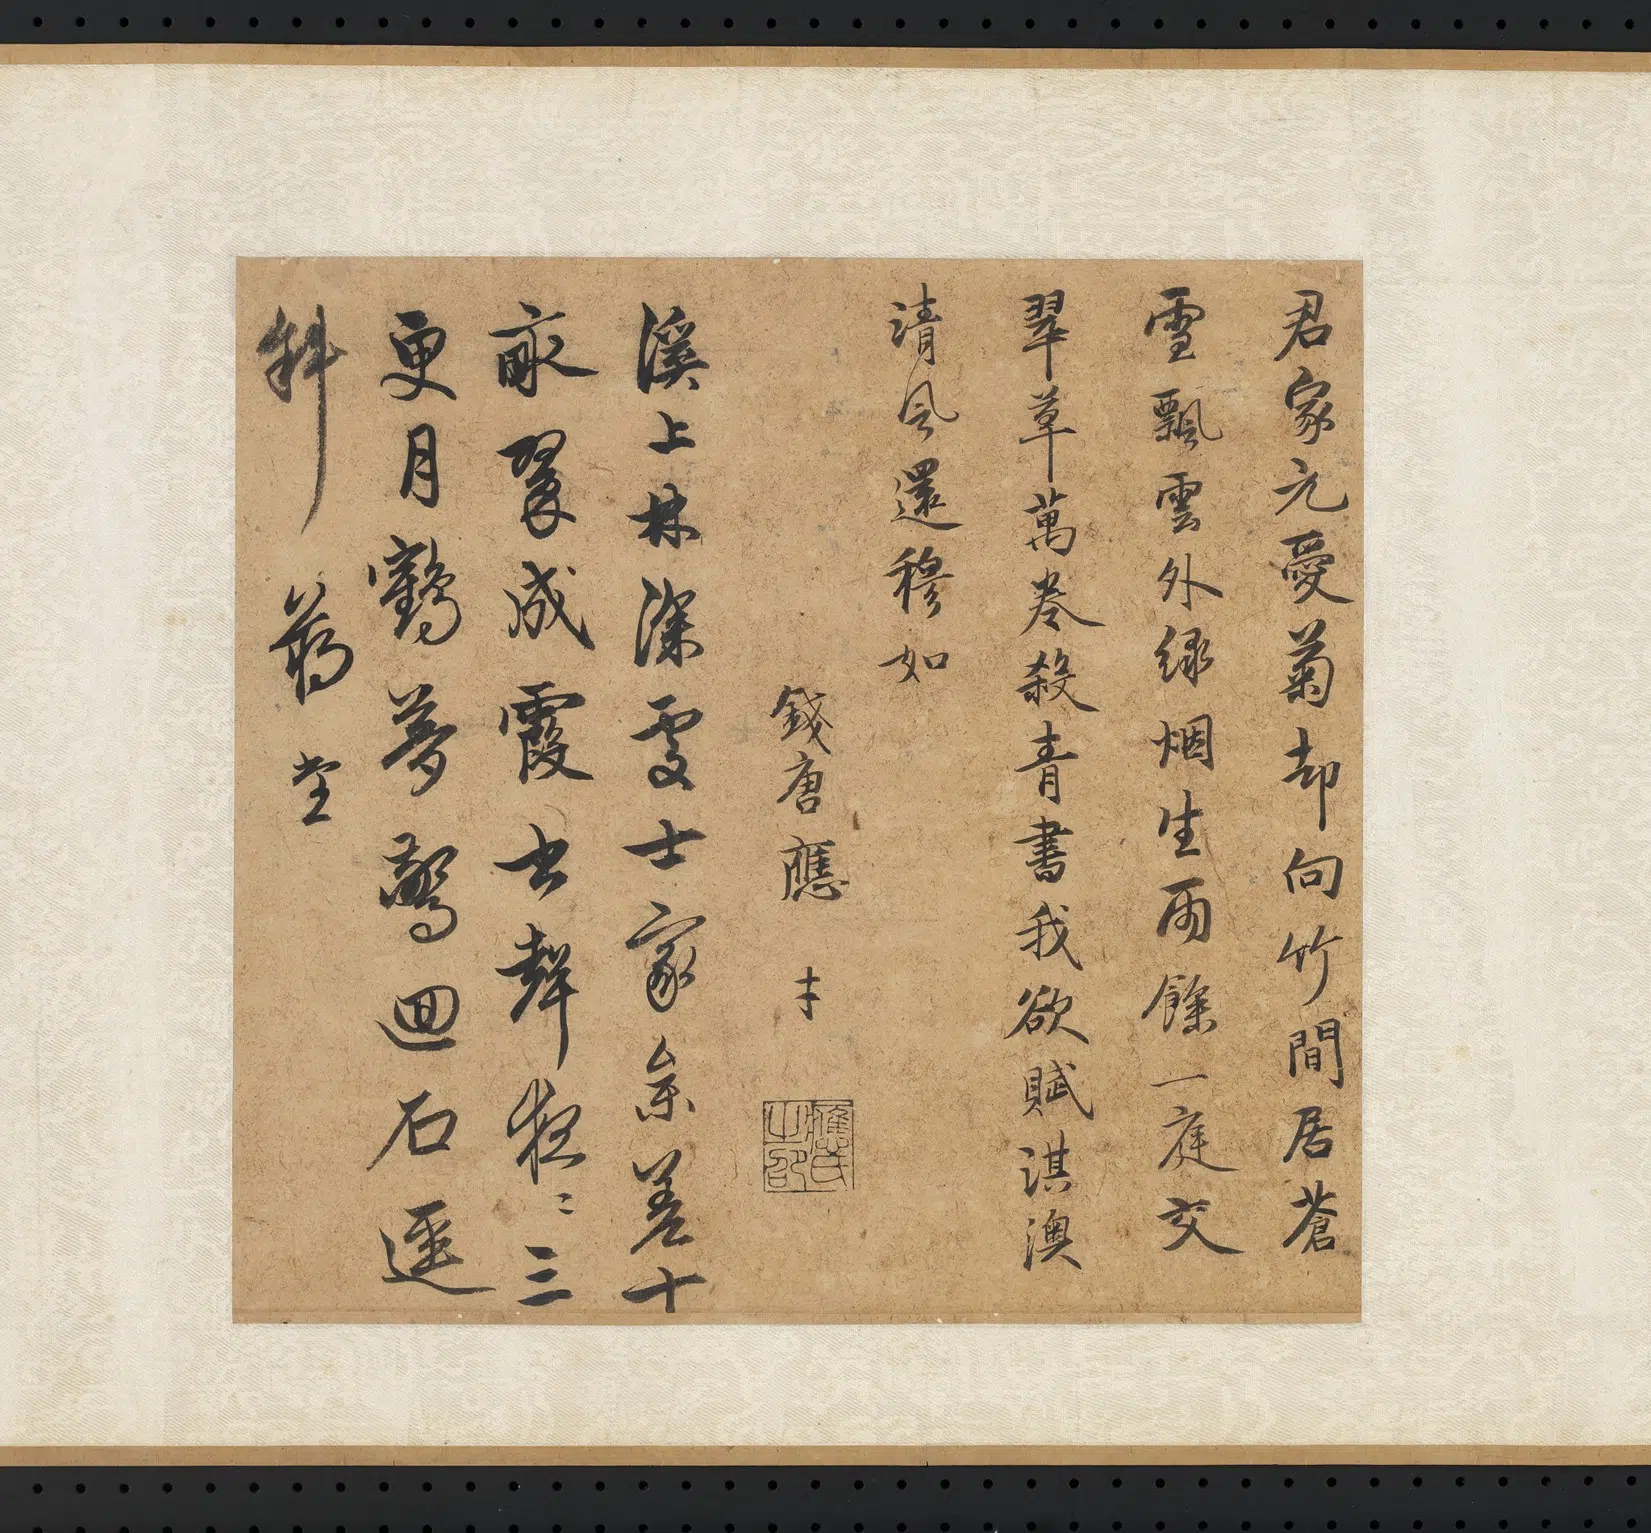 君家元愛菊却向竹間居蒼
雪飄雲外緑烟生雨餘一庭交
翠草萬卷殺青書我欲賦淇澳
清風還穆如
錢唐應才
應氏
溪上林深處士家参差十
畝翠成霞書聲夜〻三
更月鶴夢驚迴石逕
斜 蔣堂